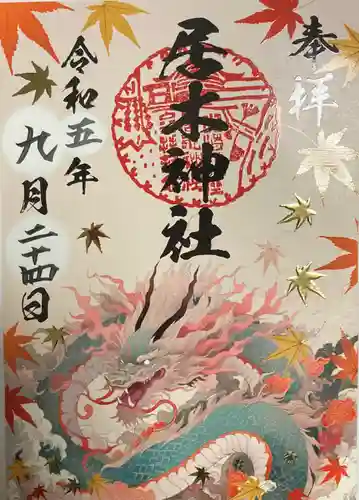 奉拝
居木神社
令和五年
九月二十四日